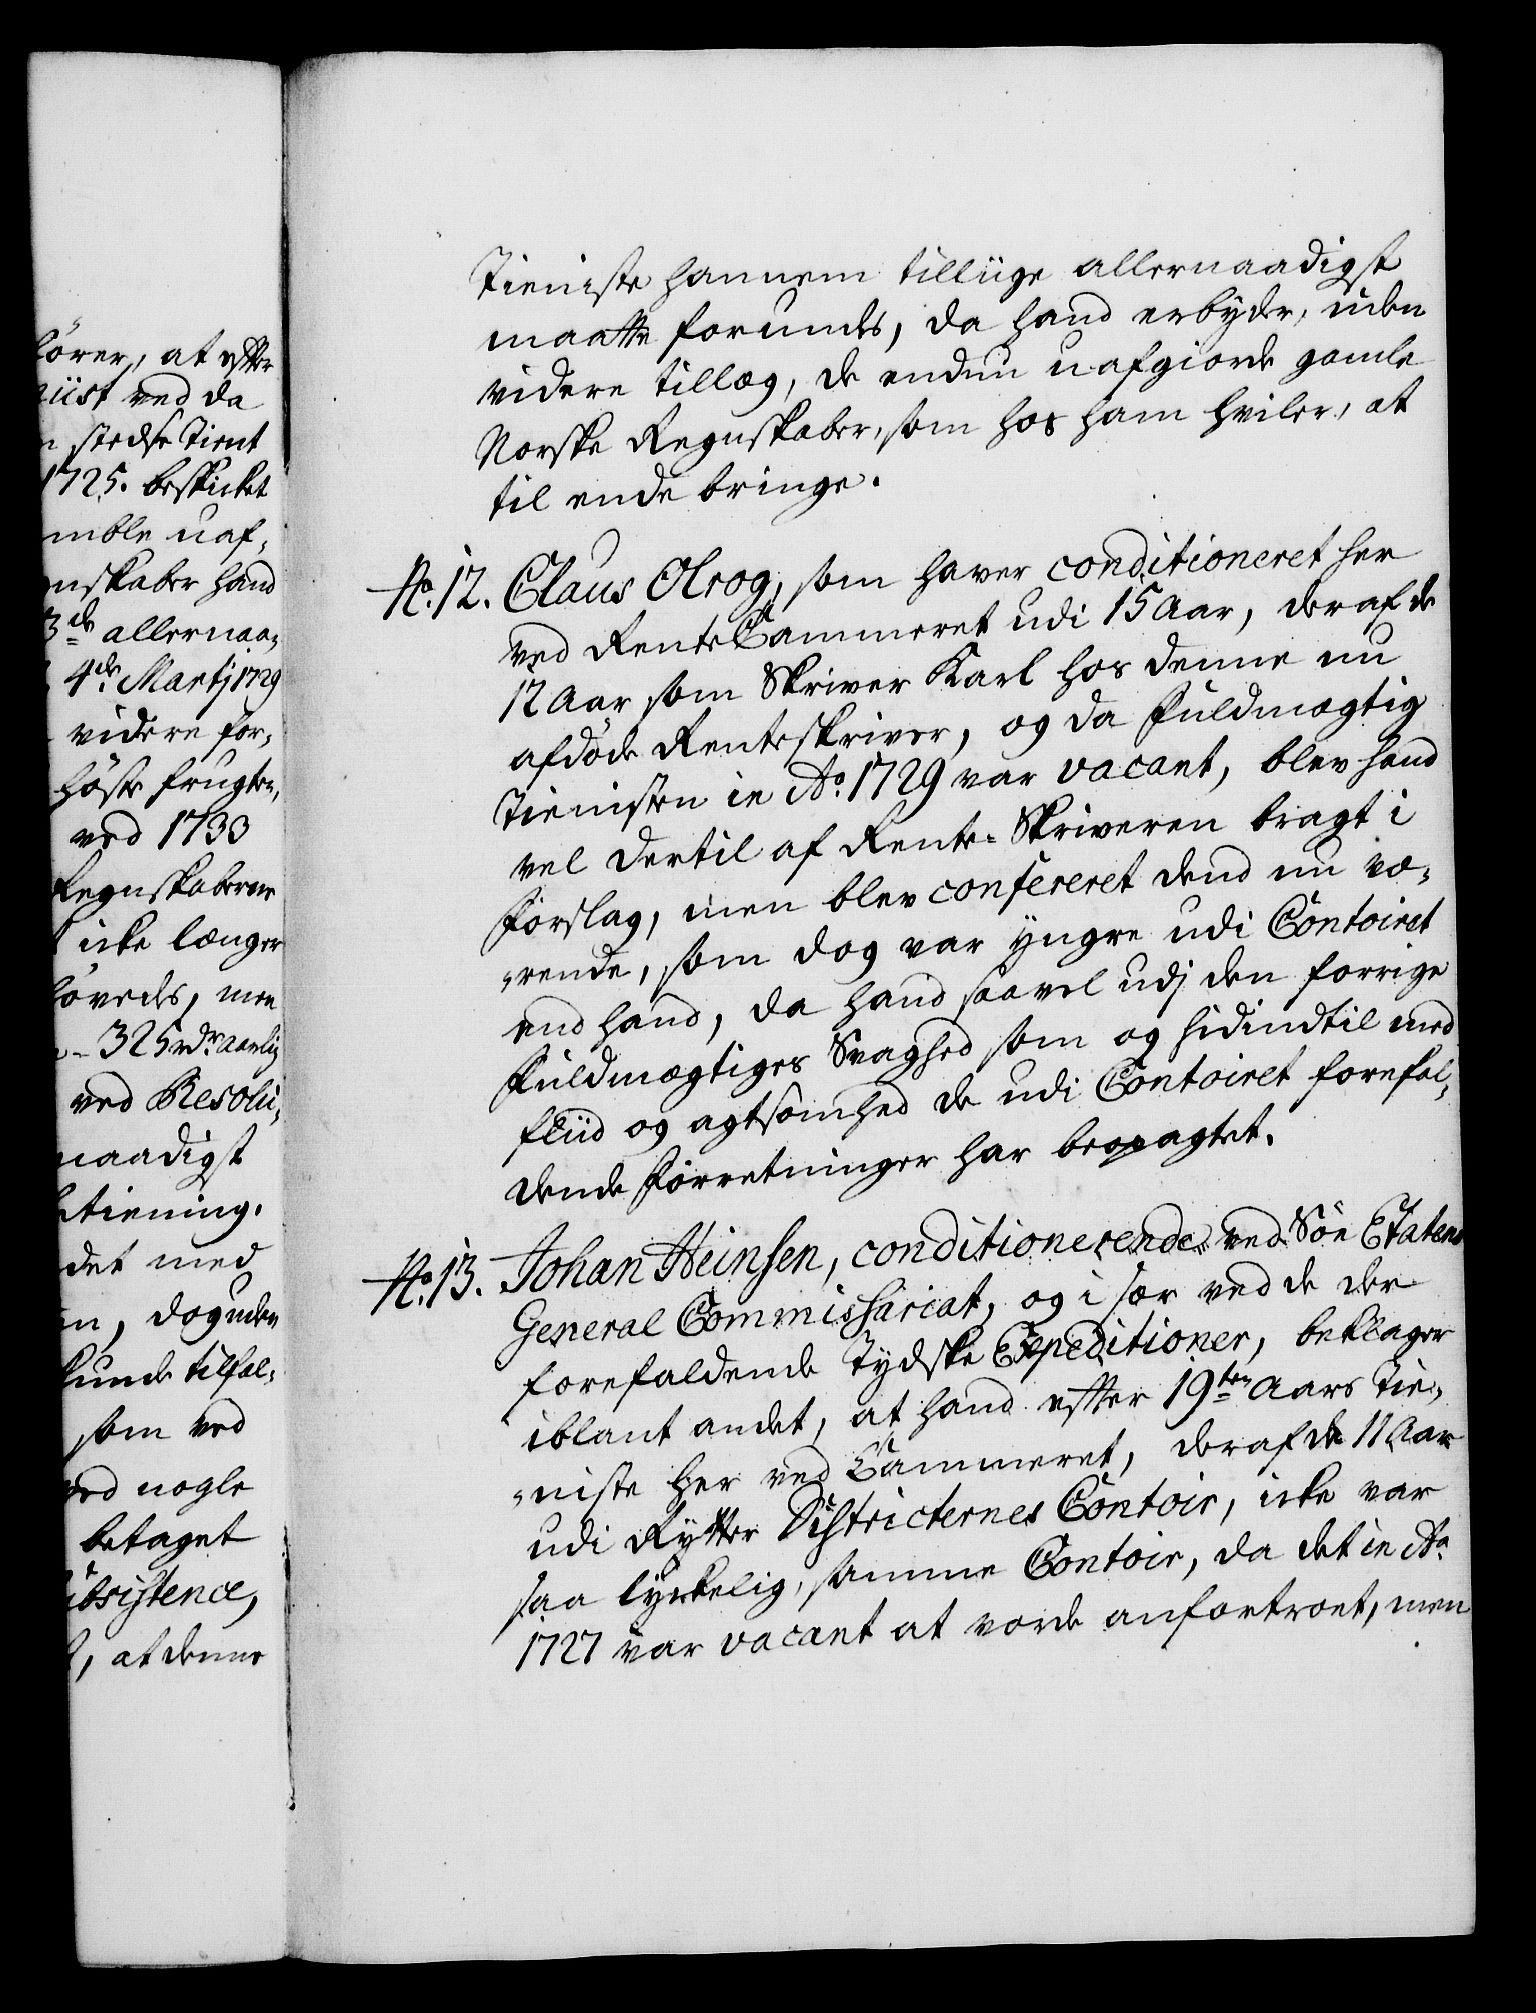 hörer, at effter
iist ved da
n stedse tient
1725. beskicket
mble uaf-
nskaber hand
3de allernaa-
4de Martj 1729
videre for-
höste frugter,
ved 1733
Regnskaberne
icke længer
hövedes, men
325 rdr aarlig
ved Resolu-
naadigst
tiening.
det med
n, dog uden
kunde tilfal-
som ved
ved nogle
betaget
ubsistence,
, at denne
Tieniste hannem tilliige allernaadigst
maatte forundes, da hand erbyder, uden
videre tillæg, de endnu uafgiorde gamle
Norske Regnskaber, som hos ham hviler, at
til ende bringe.
No. 12. Claus Olrog, som haver conditioneret her
ved RenteCammeret udi 15 Aar, deraf de
12 Aar som Skriver Karl hos denne nu
afdöde Renteskriver, og da Fuldmægtig
Tienisten in Ao. 1729 var vacant, blev hand
vel dertil af Rente-Skriveren bragt i
Forslag, men blev confereret dend nu væ-
rende, som dog var yngre udi Contoiret
end hand, da hand saavel udj den forrige
Fuldmægtiges Svaghed som og hidindtil med
fliid og agtsomhed de udi Contoiret forefal-
dende Forretninger har beopagtet.
No. 13. Johan Heinsen, conditionerende ved Söe Etatens
General Commissariat, og i sær ved de der
forefaldende Tydske Expeditioner, beklager
iblant andet, at hand effter 19ten Aars Tie-
niste her ved Cammeret, deraf de 11 Aar
udi Rytter Districternes Contoir, icke var
saa lyckelig, samme Contoir, da det in Ao
1727 var vacant at vorde anfortroet, men